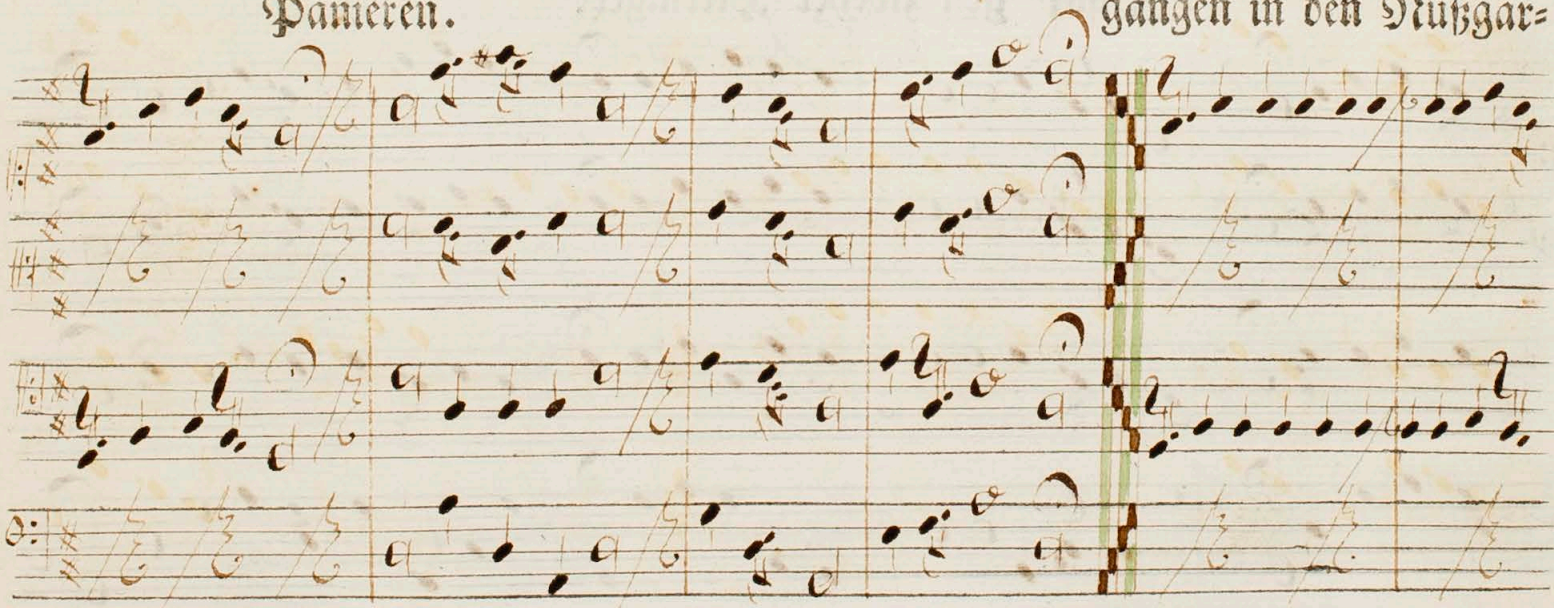 Panieren.
gangen in den Nußgar=